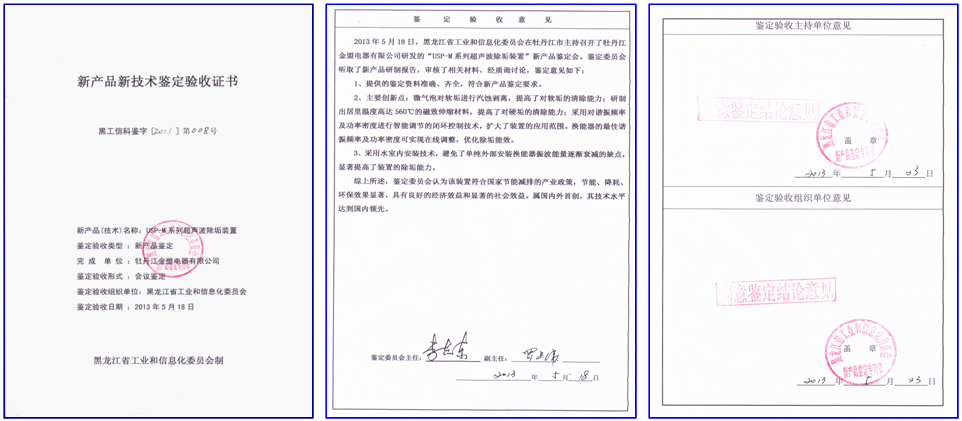 新产品新技术鉴定验收证书
黑工信科鉴字［2013］第008号
新产品(技术)名称：USP-M系列超声波除垢装置
鉴定验收类型：新产品鉴定
完成单位：牡丹江金盟电器有限公司
鉴定验收形式：会议鉴定
鉴定验收组织单位：黑龙江省工业和信息化委员会
鉴定验收日期：2013年5月18日
黑龙江省工业和信息化委员会制
鉴定验收意见
2013年5月18日，黑龙江省工业和信息化委员会在牡丹江市主持召开了牡丹江
金盟电器有限公司研发的“USP-M系列超声波除垢装置”新产品鉴定会。鉴定委员会
听取了新产品研制报告，审核了相关材料，经质询讨论，鉴定意见如下：
1、提供的鉴定资料准确、齐全，符合新产品鉴定要求。
2、主要创新点：微气泡对软垢进行汽蚀剥离，提高了对软垢的清除能力；研制
出居里温度高达560℃的磁致伸缩材料，提高了对硬垢的清除能力；采用对谐振频率
及功率密度进行智能调节的闭环控制技术，扩大了装置的应用范围。换能器的最佳谐
振频率及功率密度可实现在线调整，优化除垢能效。
3、采用水室内安装技术，避免了单纯外部安装换能器振波能量逐渐衰减的缺点，
显著提高了装置的除垢能力。
综上所述，鉴定委员会认为该装置符合国家节能减排的产业政策，节能、降耗、
环保效果显著，具有良好的经济效益和显著的社会效益。属国内外首创，其技术水平
达到国内领先。
鉴定委员会主任： 副主任：
2013年5月18日
鉴定验收主持单位意见
同意鉴定结论意见
黑龙江省工业和信息化委员会
盖章
新产品鉴定专用章
2013年5月23日
鉴定验收组织单位意见
同意鉴定结论意见
黑龙江省工业和信息化委员会
盖章
新产品鉴定专用章
2013年5月23日